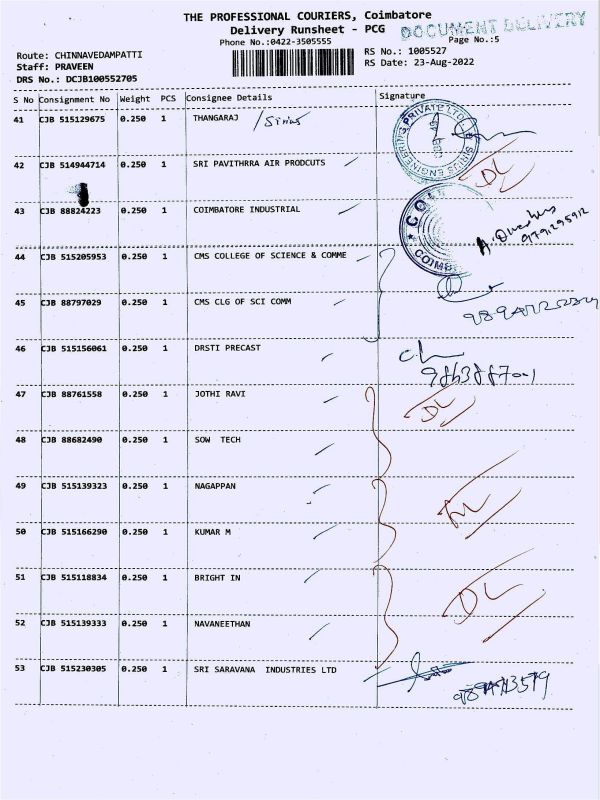 THE PROFESSIONAL COURIERS, Coimbatore
Delivery Runsheet - PCG
DOCUMENT DELIVERY
Phone No.:0422-3505555
Page No.:5
Route: CHINNAVEDAMPATTI
RS No.: 1005527
Staff: PRAVEEN
RS Date: 23-Aug-2022
DRS No.: DCJB100552705
S No Consignment No Weight PCS Consignee Details Signature
41 CJB 515129675 0.250 1 THANGARAJ /Sirius
SIRIUS ENGINEERING PRIVATE LTD.
42 CJB 514944714 0.250 1 SRI PAVITHRRA AIR PRODCUTS DL
43 CJB 88824223 0.250 1 COIMBATORE INDUSTRIAL
9791295912
44 CJB 515205953 0.250 1 CMS COLLEGE OF SCIENCE & COMME
45 CJB 88797029 0.250 1 CMS CLG OF SCI COMM
46 CJB 515156061 0.250 1 DRSTI PRECAST
47 CJB 88761558 0.250 1 JOTHI RAVI DL
48 CJB 88682490 0.250 1 SOW TECH
49 CJB 515139323 0.250 1 NAGAPPAN DL
50 CJB 515166290 0.250 1 KUMAR M
51 CJB 515118834 0.250 1 BRIGHT IN DL
52 CJB 515139333 0.250 1 NAVANEETHAN
53 CJB 515230305 0.250 1 SRI SARAVANA INDUSTRIES LTD